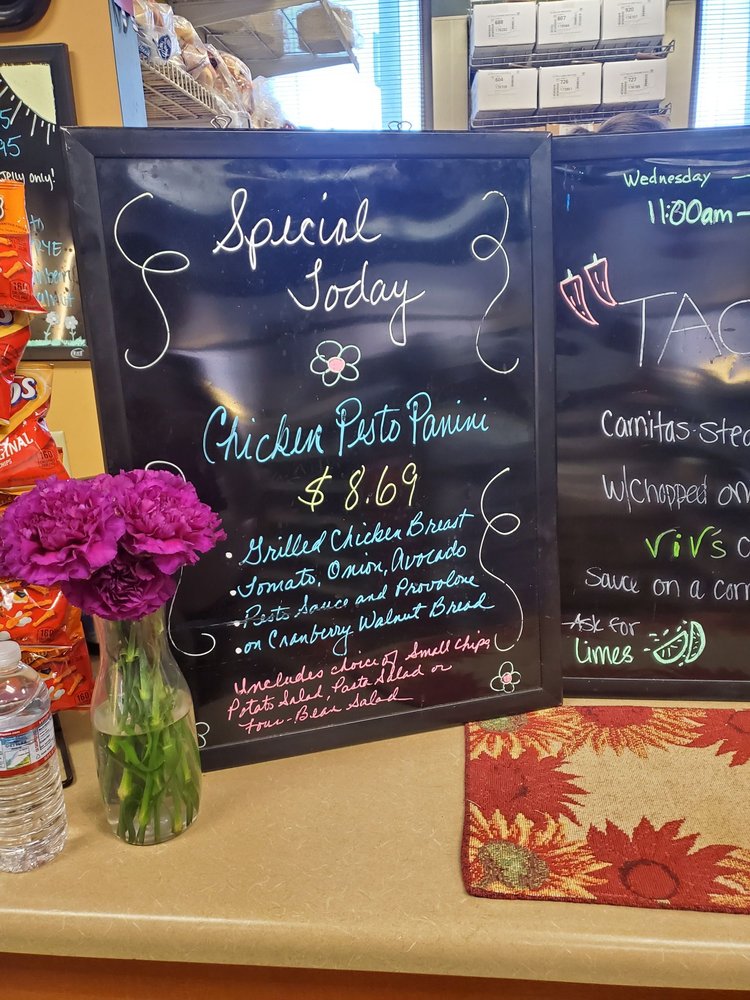 Special
Today
Chicken Pesto Panini
$8.69
• Grilled Chicken Breast
Tomato, Onion, Avocado
Pesto Sauce and Provolone
• on Cranberry Walnut Bread
Includes choice of Small Chips
Potato Salad, Pasta Salad or
Four-Bean Salad
Wednesday
11:00am-
TAC
Carnitas-Stea
w/Chopped on
ViV's
Sauce on a corn
Ask for
Limes
Jelly only!
95
to
RYE
INAL
160